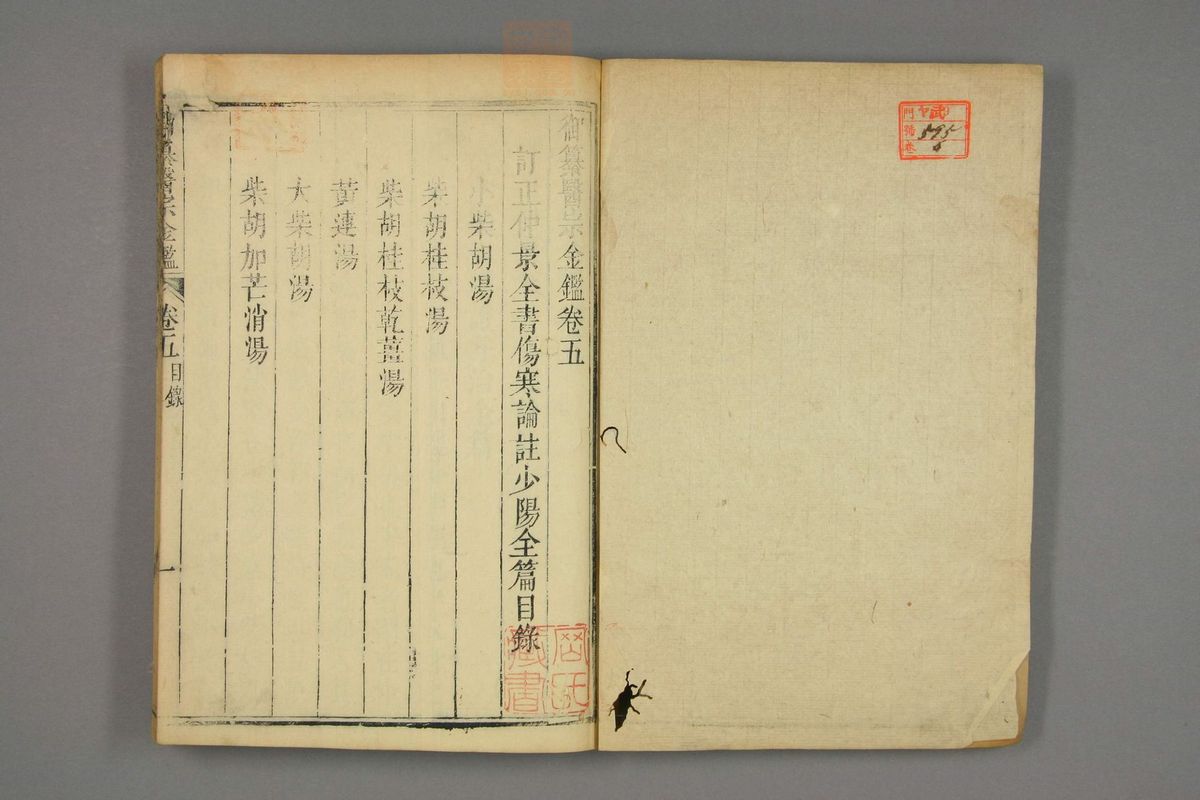 御纂醫宗金鑑卷五
訂正仲景全書傷寒論註少陽全篇目錄
小柴胡湯
柴胡桂枝湯
柴胡桂枝乾薑湯
黃連湯
大柴胡湯
柴胡加芒消湯
御纂醫宗金鑑 卷五 目錄 一
門 號 卷
595
6
藏書